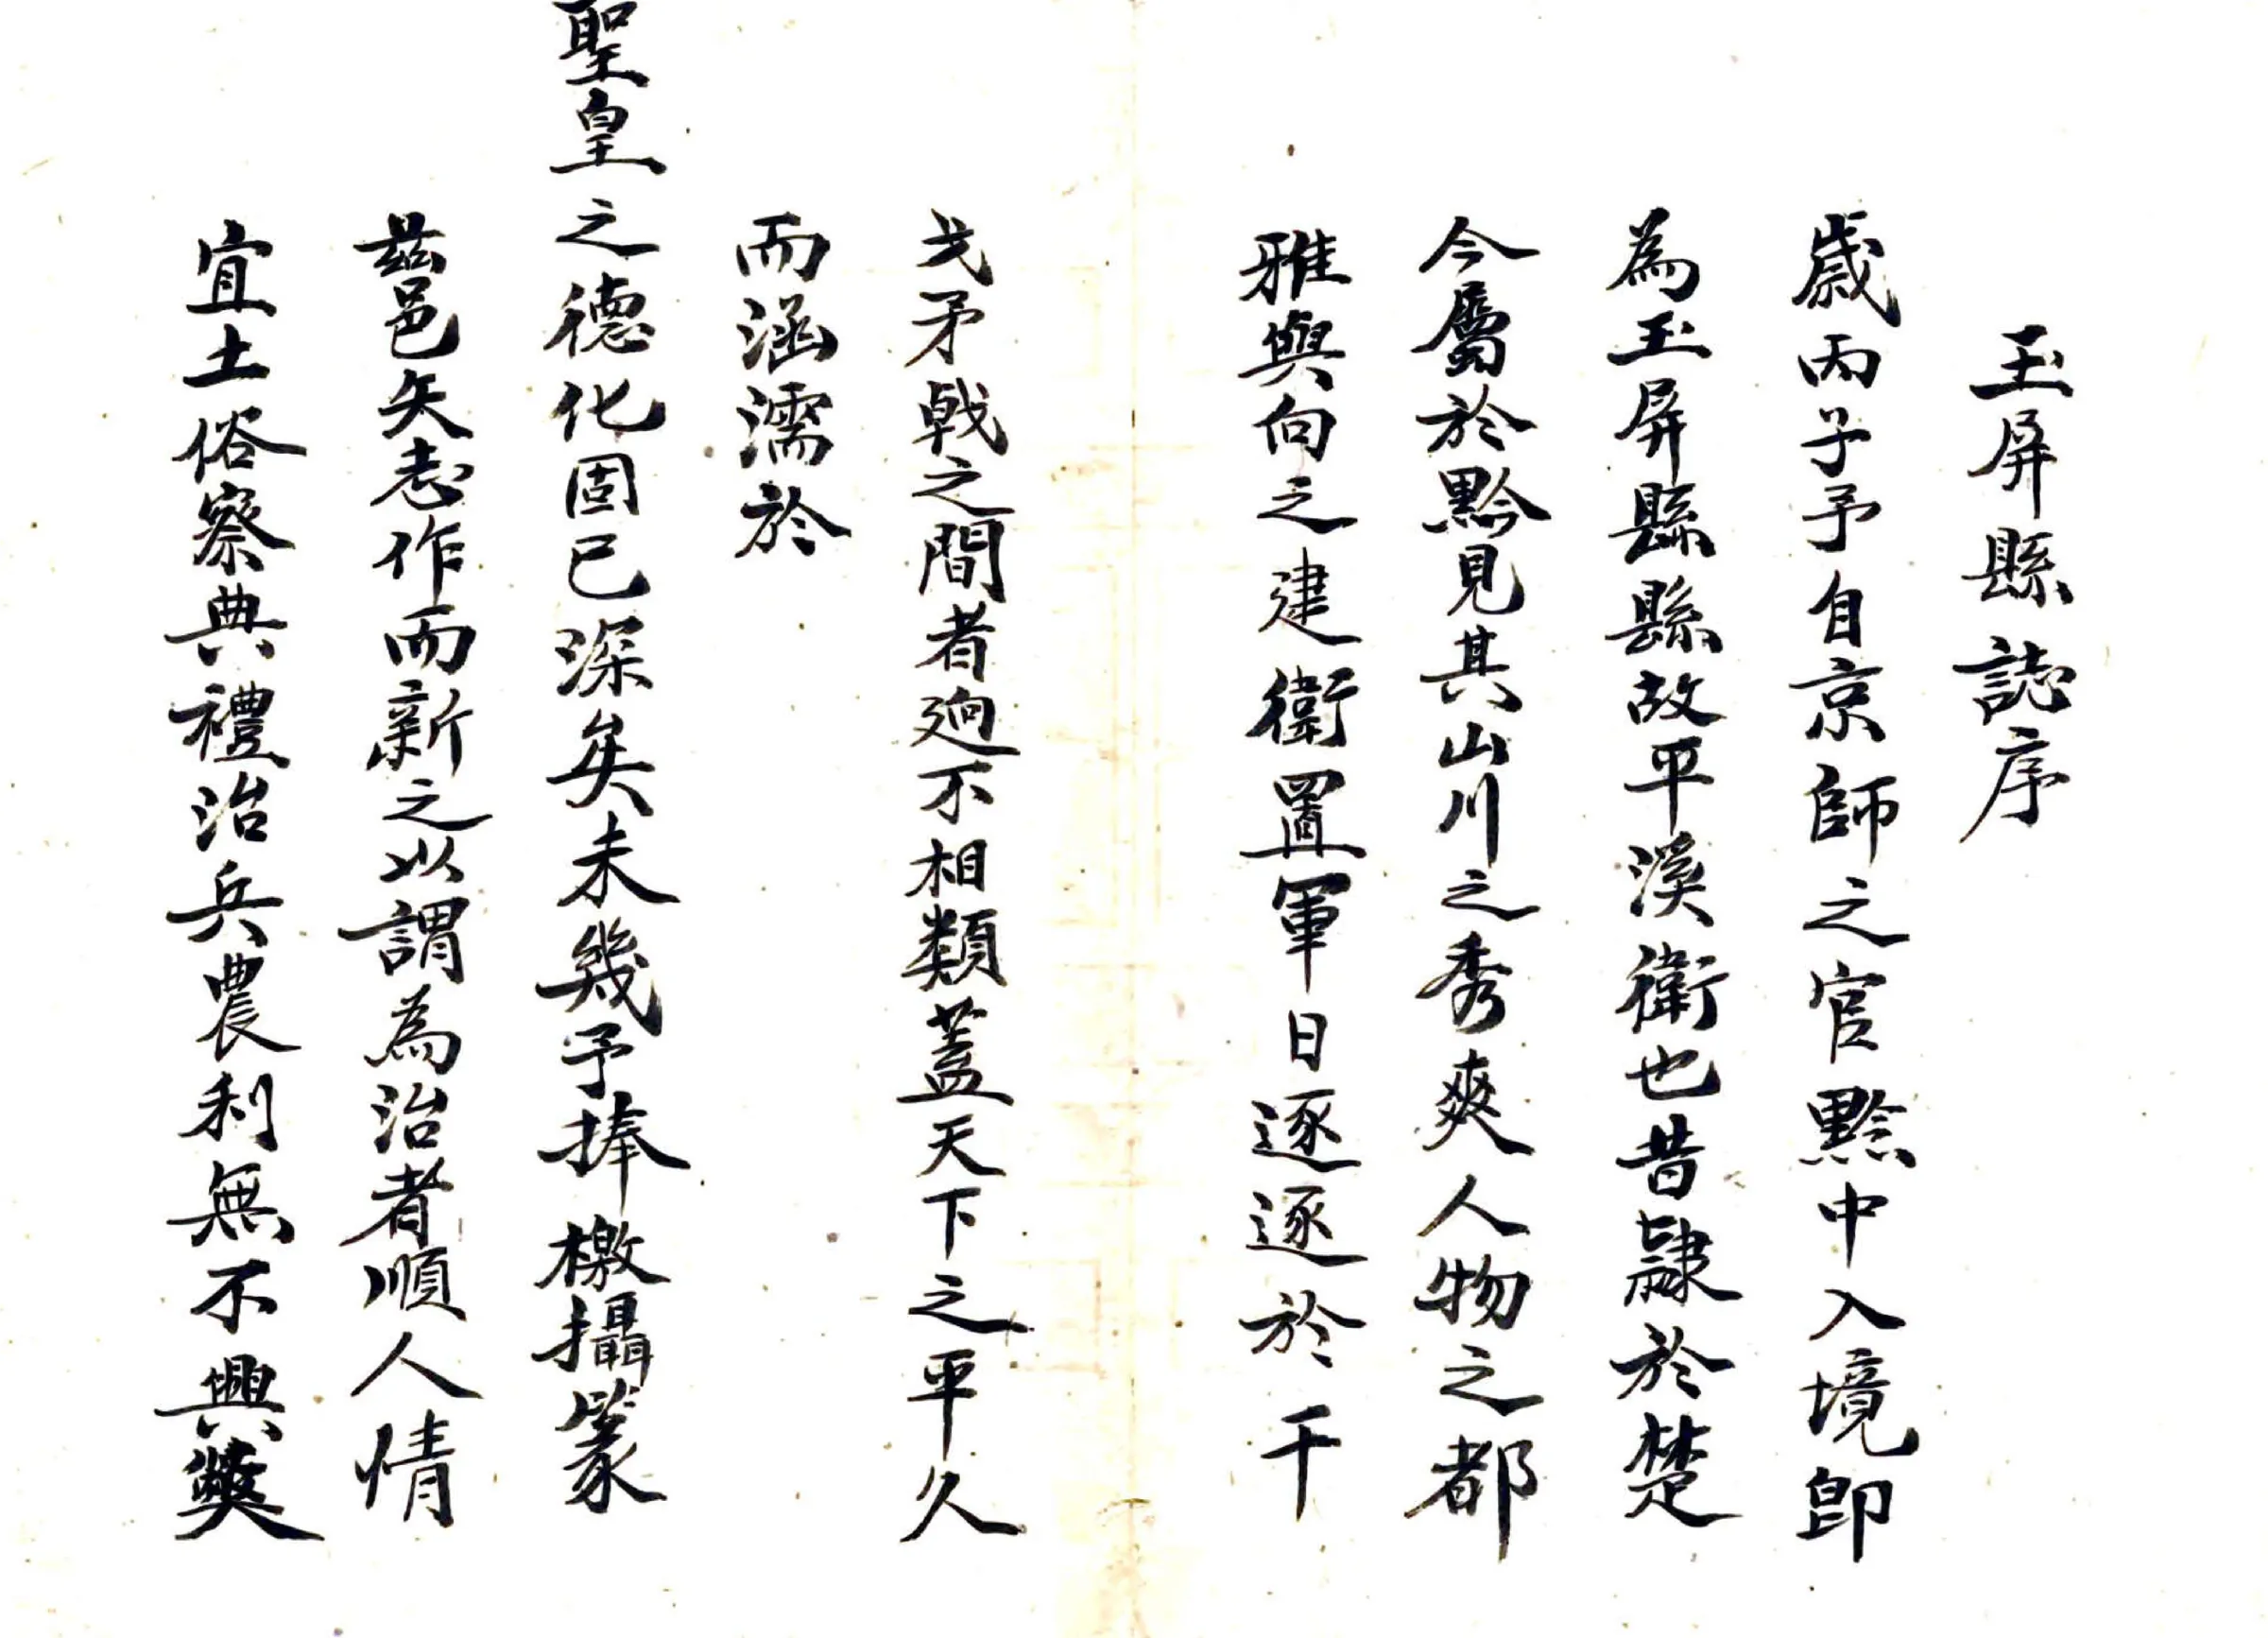 玉屏縣誌序
歲丙子予自京師之官黔中入境卽
為玉屏縣縣故平溪衛也昔隸於楚
今屬於黔見其山川之秀爽人物之都
雅與向之建衛置軍日逐逐於干
戈矛戟之間者迥不相類蓋天下之平久
而涵濡於
聖皇之德化固已深矣未幾予捧檄攝篆
茲邑矢志作而新之以謂為治者順人情
宜土俗察典禮治兵農利無不興獘